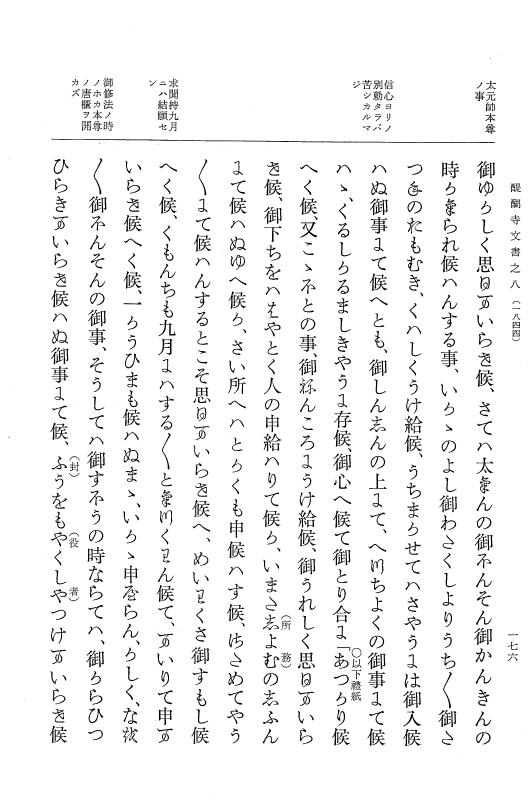 醍醐寺文書之八(一八四四)
一七六
太元帥本尊
ノ事
信心ヨリノ
別勅タラバ
苦シカルマ
ジ
求聞持九月
ニハ結願セ
ン
御修法ノ時
ノホカ本尊
ノ唐櫃ヲ開
カズ
御ゆかしく思召いらせ候、さてハ太けんの御ほんそん御かんきんの
時かけられ候ハんする事、いかゝのよし御わたくしよりうち〳〵御さ
つねのたもむき、くハしくうけ給候、うちまかせてハさやうには御入候
ハぬ御事にて候へとも、御しんしんの上にて、へつちよくの御事にて候
ハゝ、くるしかるましきやうに存候、御心へ候て御とり合に「あつかり候
○以下禮紙
へく候、又こゝほとの事、御ねんころにうけ給候、御うれしく思召まいら
せ候、御下ちをハはやとく人の申給ハりて候か、いまたしよむのしふん
(所務)
にて候ハぬゆへ候か、さい所へハとかくも申候ハす候、はためてやう
〳〵にて候ハんするとこそ思召まいらせ候へ、めいわくさ御すもし候
へく候、くもんちも九月にハする〳〵とけつくわん候て、まいりて申ま
いらせ候へく候、一かうひまも候ハぬまゝ、いかゝ申さらん、かしく、なを
〳〵御ほんそんの御事、そうしてハ御すほうの時ならてハ、御からひつ
ひらきまいらせ候ハぬ御事にて候、ふうをもやくしやつけまいらせ候
(封)
(役者)